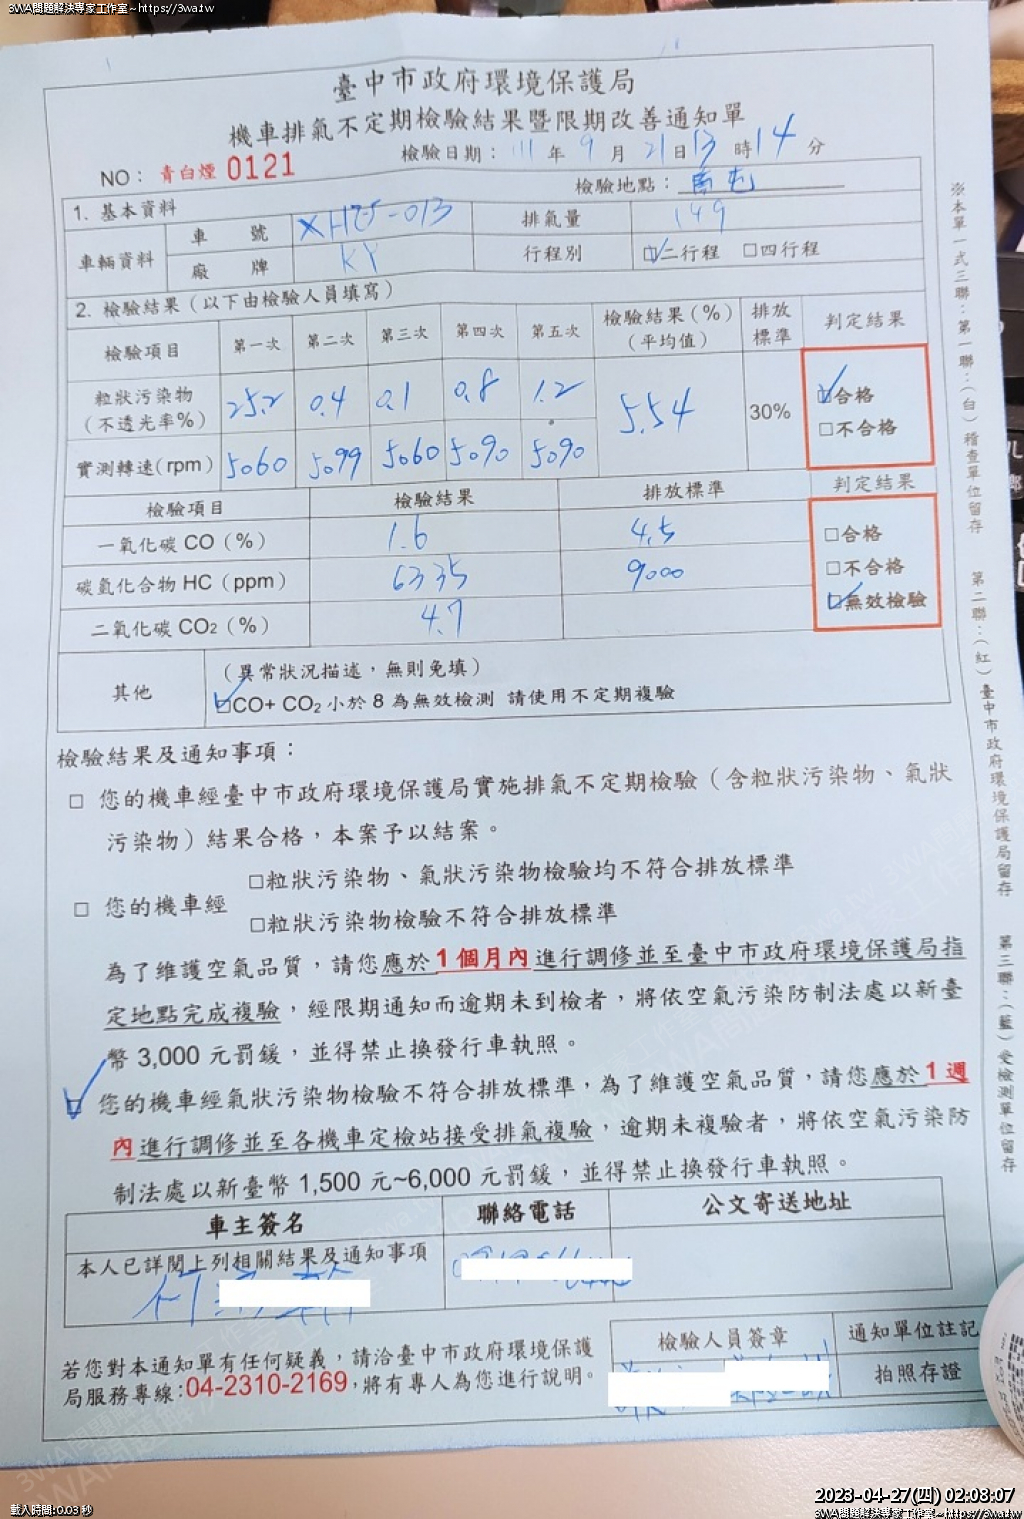 3WA問題解決專家工作室~https://3wa.tw
臺中市政府環境保護局
機車排氣不定期檢驗結果暨限期改善通知單
檢驗日期：111 年 9 月 21 日 13 時 14 分
NO：青白煙 0121
檢驗地點：西屯
1. 基本資料
車輛資料 車號 排氣量 149
廠牌 KY 行程別 ☑二行程 □四行程
2. 檢驗結果（以下由檢驗人員填寫）
檢驗項目 第一次 第二次 第三次 第四次 第五次 檢驗結果（%）（平均值） 排放標準 判定結果
粒狀污染物（不透光率%） 25.2 0.4 0.1 0.8 1.2 5.54 30% ☑合格 □不合格
實測轉速(rpm) 5060 5099 5060 5090 5090
檢驗項目 檢驗結果 排放標準 判定結果
一氧化碳 CO（%） 1.6 4.5 □合格
碳氫化合物 HC（ppm） 6335 9000 □不合格
二氧化碳 CO2（%） 4.7 ☑無效檢驗
其他 （異常狀況描述，無則免填）
☑CO+ CO2 小於 8 為無效檢測 請使用不定期複驗
檢驗結果及通知事項：
□ 您的機車經臺中市政府環境保護局實施排氣不定期檢驗（含粒狀污染物、氣狀
污染物）結果合格，本案予以結案。
□ 您的機車經 □粒狀污染物、氣狀污染物檢驗均不符合排放標準
□粒狀污染物檢驗不符合排放標準
為了維護空氣品質，請您應於1個月內進行調修並至臺中市政府環境保護局指
定地點完成複驗，經限期通知而逾期未到檢者，將依空氣污染防制法處以新臺
幣 3,000 元罰鍰，並得禁止換發行車執照。
☑ 您的機車經氣狀污染物檢驗不符合排放標準，為了維護空氣品質，請您應於1週
內進行調修並至各機車定檢站接受排氣複驗，逾期未複驗者，將依空氣污染防
制法處以新臺幣 1,500 元~6,000 元罰鍰，並得禁止換發行車執照。
車主簽名 聯絡電話 公文寄送地址
本人已詳閱上列相關結果及通知事項
檢驗人員簽章 通知單位註記
拍照存證
若您對本通知單有任何疑義，請洽臺中市政府環境保護
局服務專線:04-2310-2169,將有專人為您進行說明。
※本單一式三聯：第一聯：（白）稽查單位留存 第二聯：（紅）臺中市政府環境保護局留存 第三聯：（藍）受檢測單位留存
載入時間:0.03 秒
2023-04-27(四) 02:08:07
3WA問題解決專家工作室~https://3wa.tw